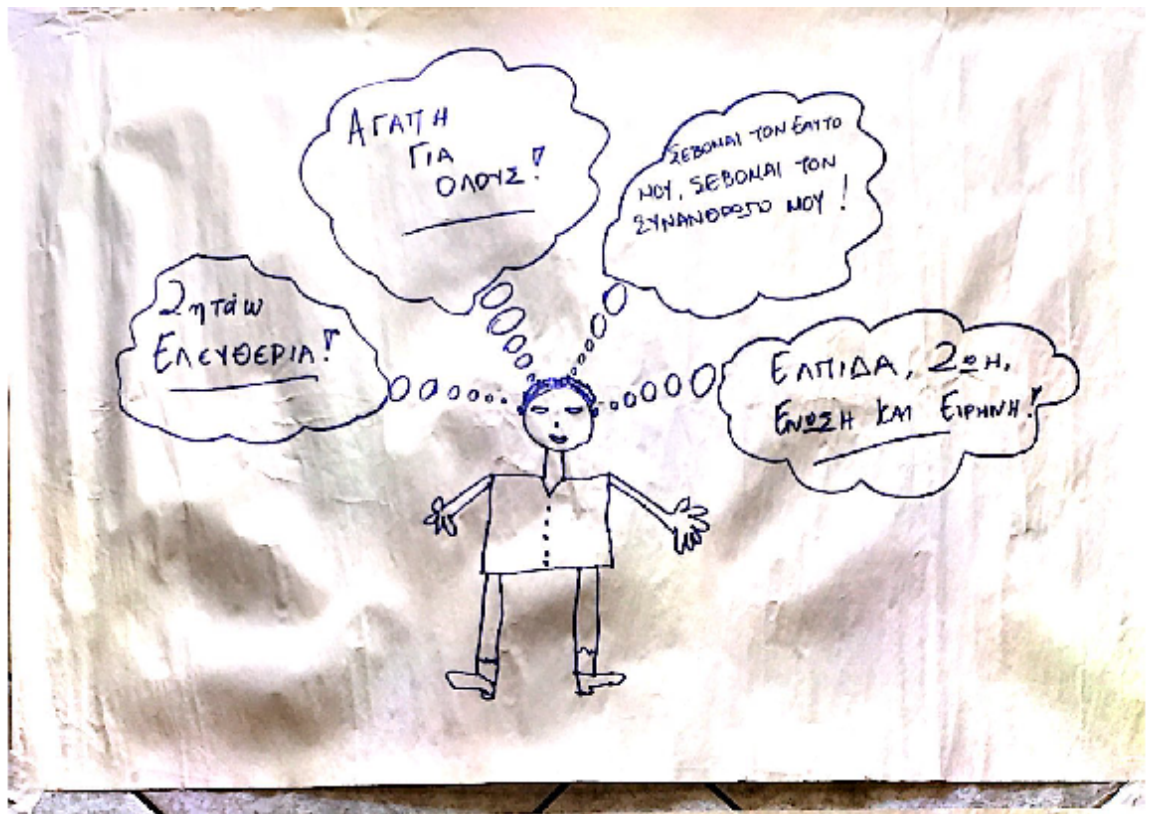 Ζητάω
ΕΛΕΥΘΕΡΙΑ!
ΑΓΑΠΗ
ΓΙΑ
ΟΛΟΥΣ!
ΣΕΒΟΜΑΙ ΤΟΝ ΕΑΥΤΟ
ΜΟΥ, ΣΕΒΟΜΑΙ ΤΟΝ
ΣΥΝΑΝΘΡΩΠΟ ΜΟΥ!
ΕΛΠΙΔΑ, ΖΩΗ,
ΕΝΩΣΗ ΚΑΙ ΕΙΡΗΝΗ!